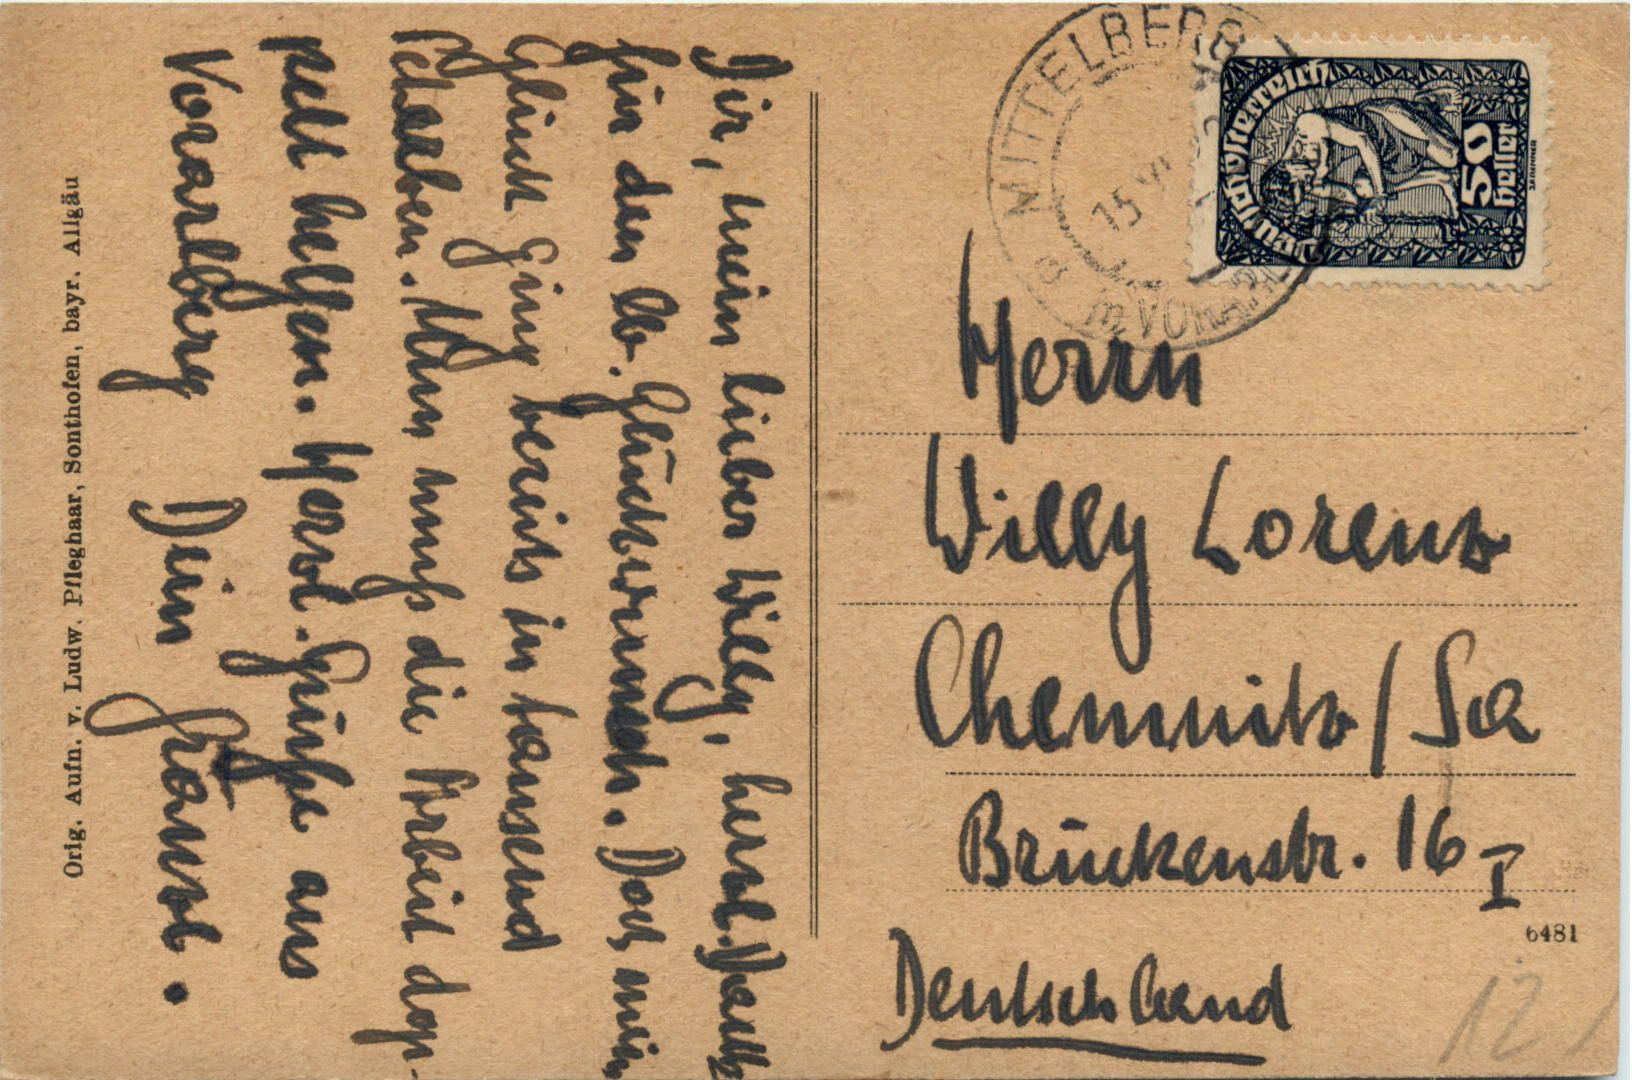 Dir, mein lieber Willy, herzl. Dank
für den lb. Glückwunsch. Doch mein
Glück ging bereits in tausend
Scherben. Nun muß die Arbeit dop-
pelt helfen. Herzl. Grüße aus
Vorarlberg Dein
Orig. Aufn. v. Ludw. Pfleghaar, Sonthofen, bayr. Allgäu
MITTELBERG
15 VI
Deutschösterreich
50
heller
Herrn
Willy Lorenz
Chemnitz/Sa
Brückenstr. 16 I
6481
Deutschland
12